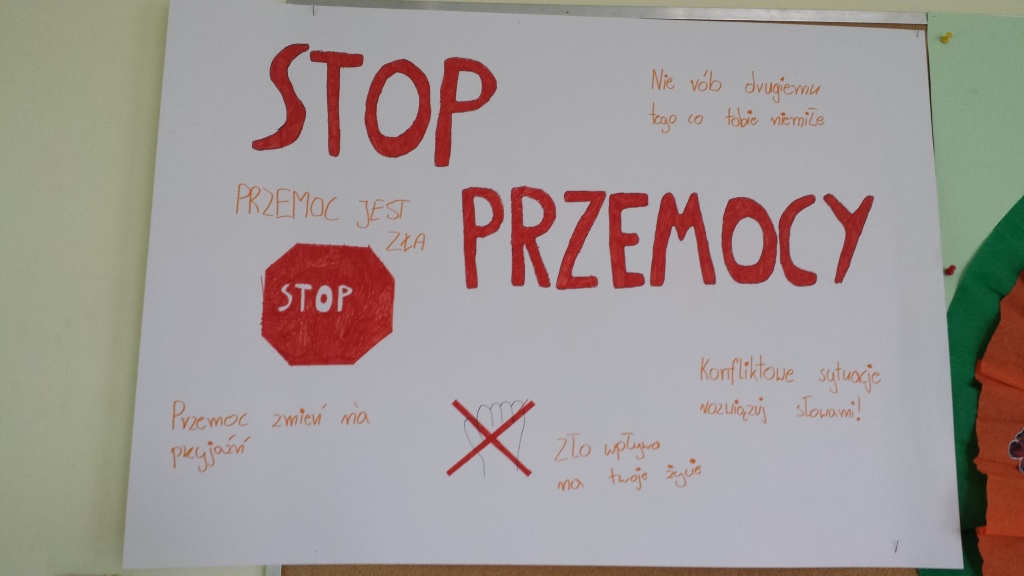 STOP
PRZEMOCY
Nie rób drugiemu
tego co tobie niemiłe
PRZEMOC JEST
ZŁA
STOP
Konfliktowe sytuacje
rozwiązuj słowami!
Przemoc zmień na
przyjaźń
Zło wpływa
na twoje życie